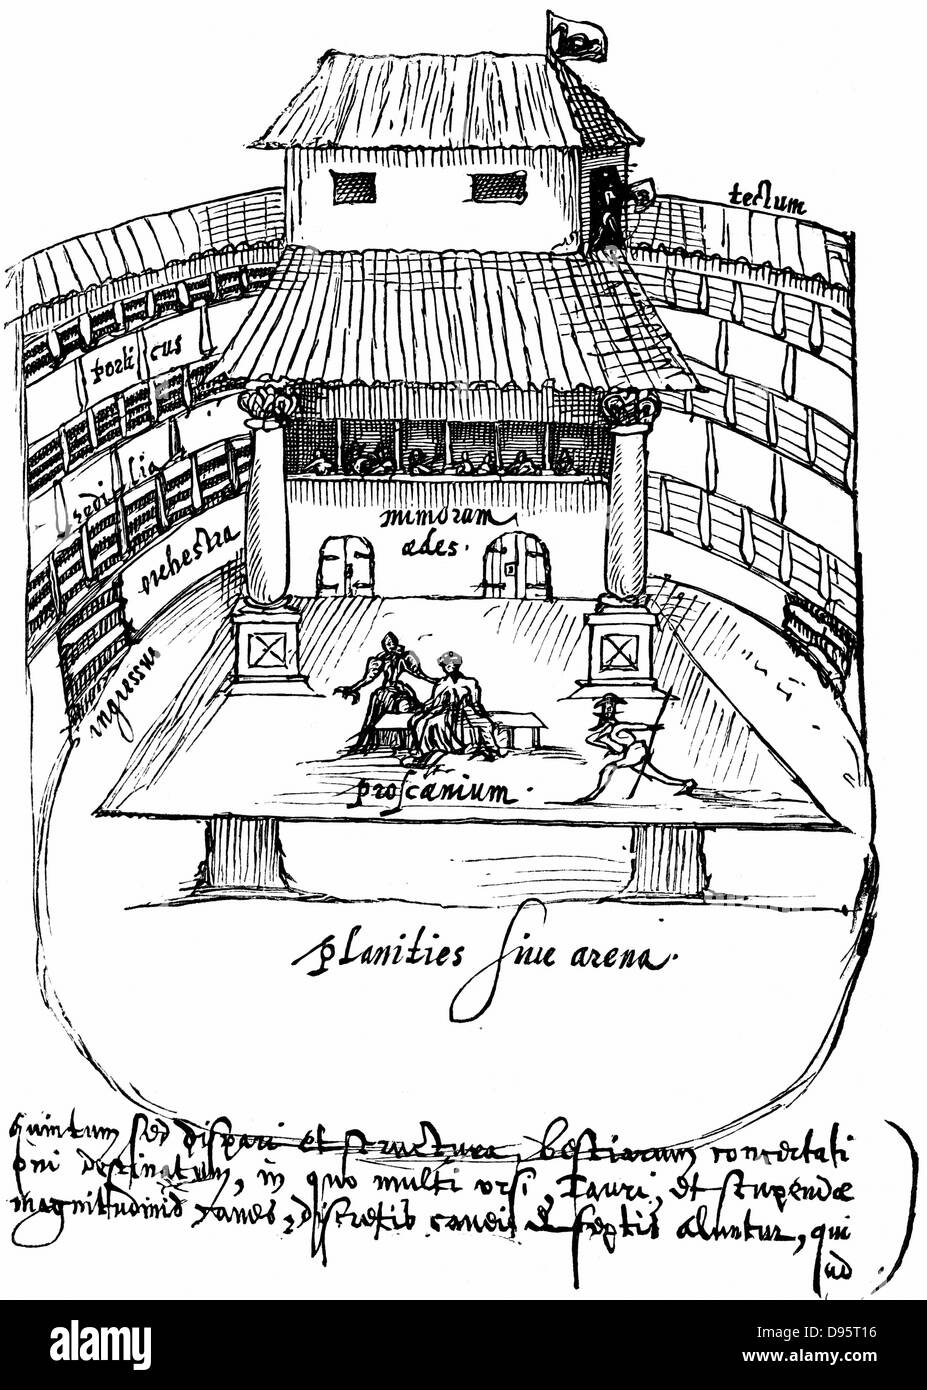 tectum
porticus
sedilia
orchestra
mimorum
ædes.
ingressus
proscænium.
planities sive arena.
Quintum sed dispari et structura, bestiarum concertati
oni destinatum, in quo multi ursi, Tauri, et stupendæ
magnitudinis canes, discretis caveis & septis aluntur, qui
ad
alamy
Image ID: D95T16
www.alamy.com